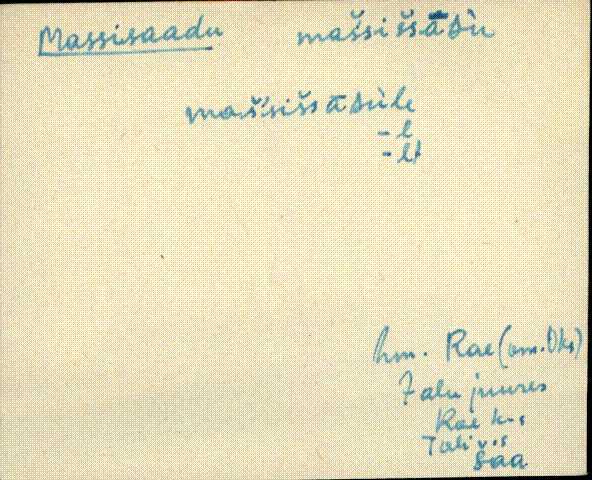 Massisaadu maš́siššādù
maš́siššādùle
-l
-lt
hm. Rae (om. Oks)
Talu juures
Rae k-s
Tali v-s
Saa